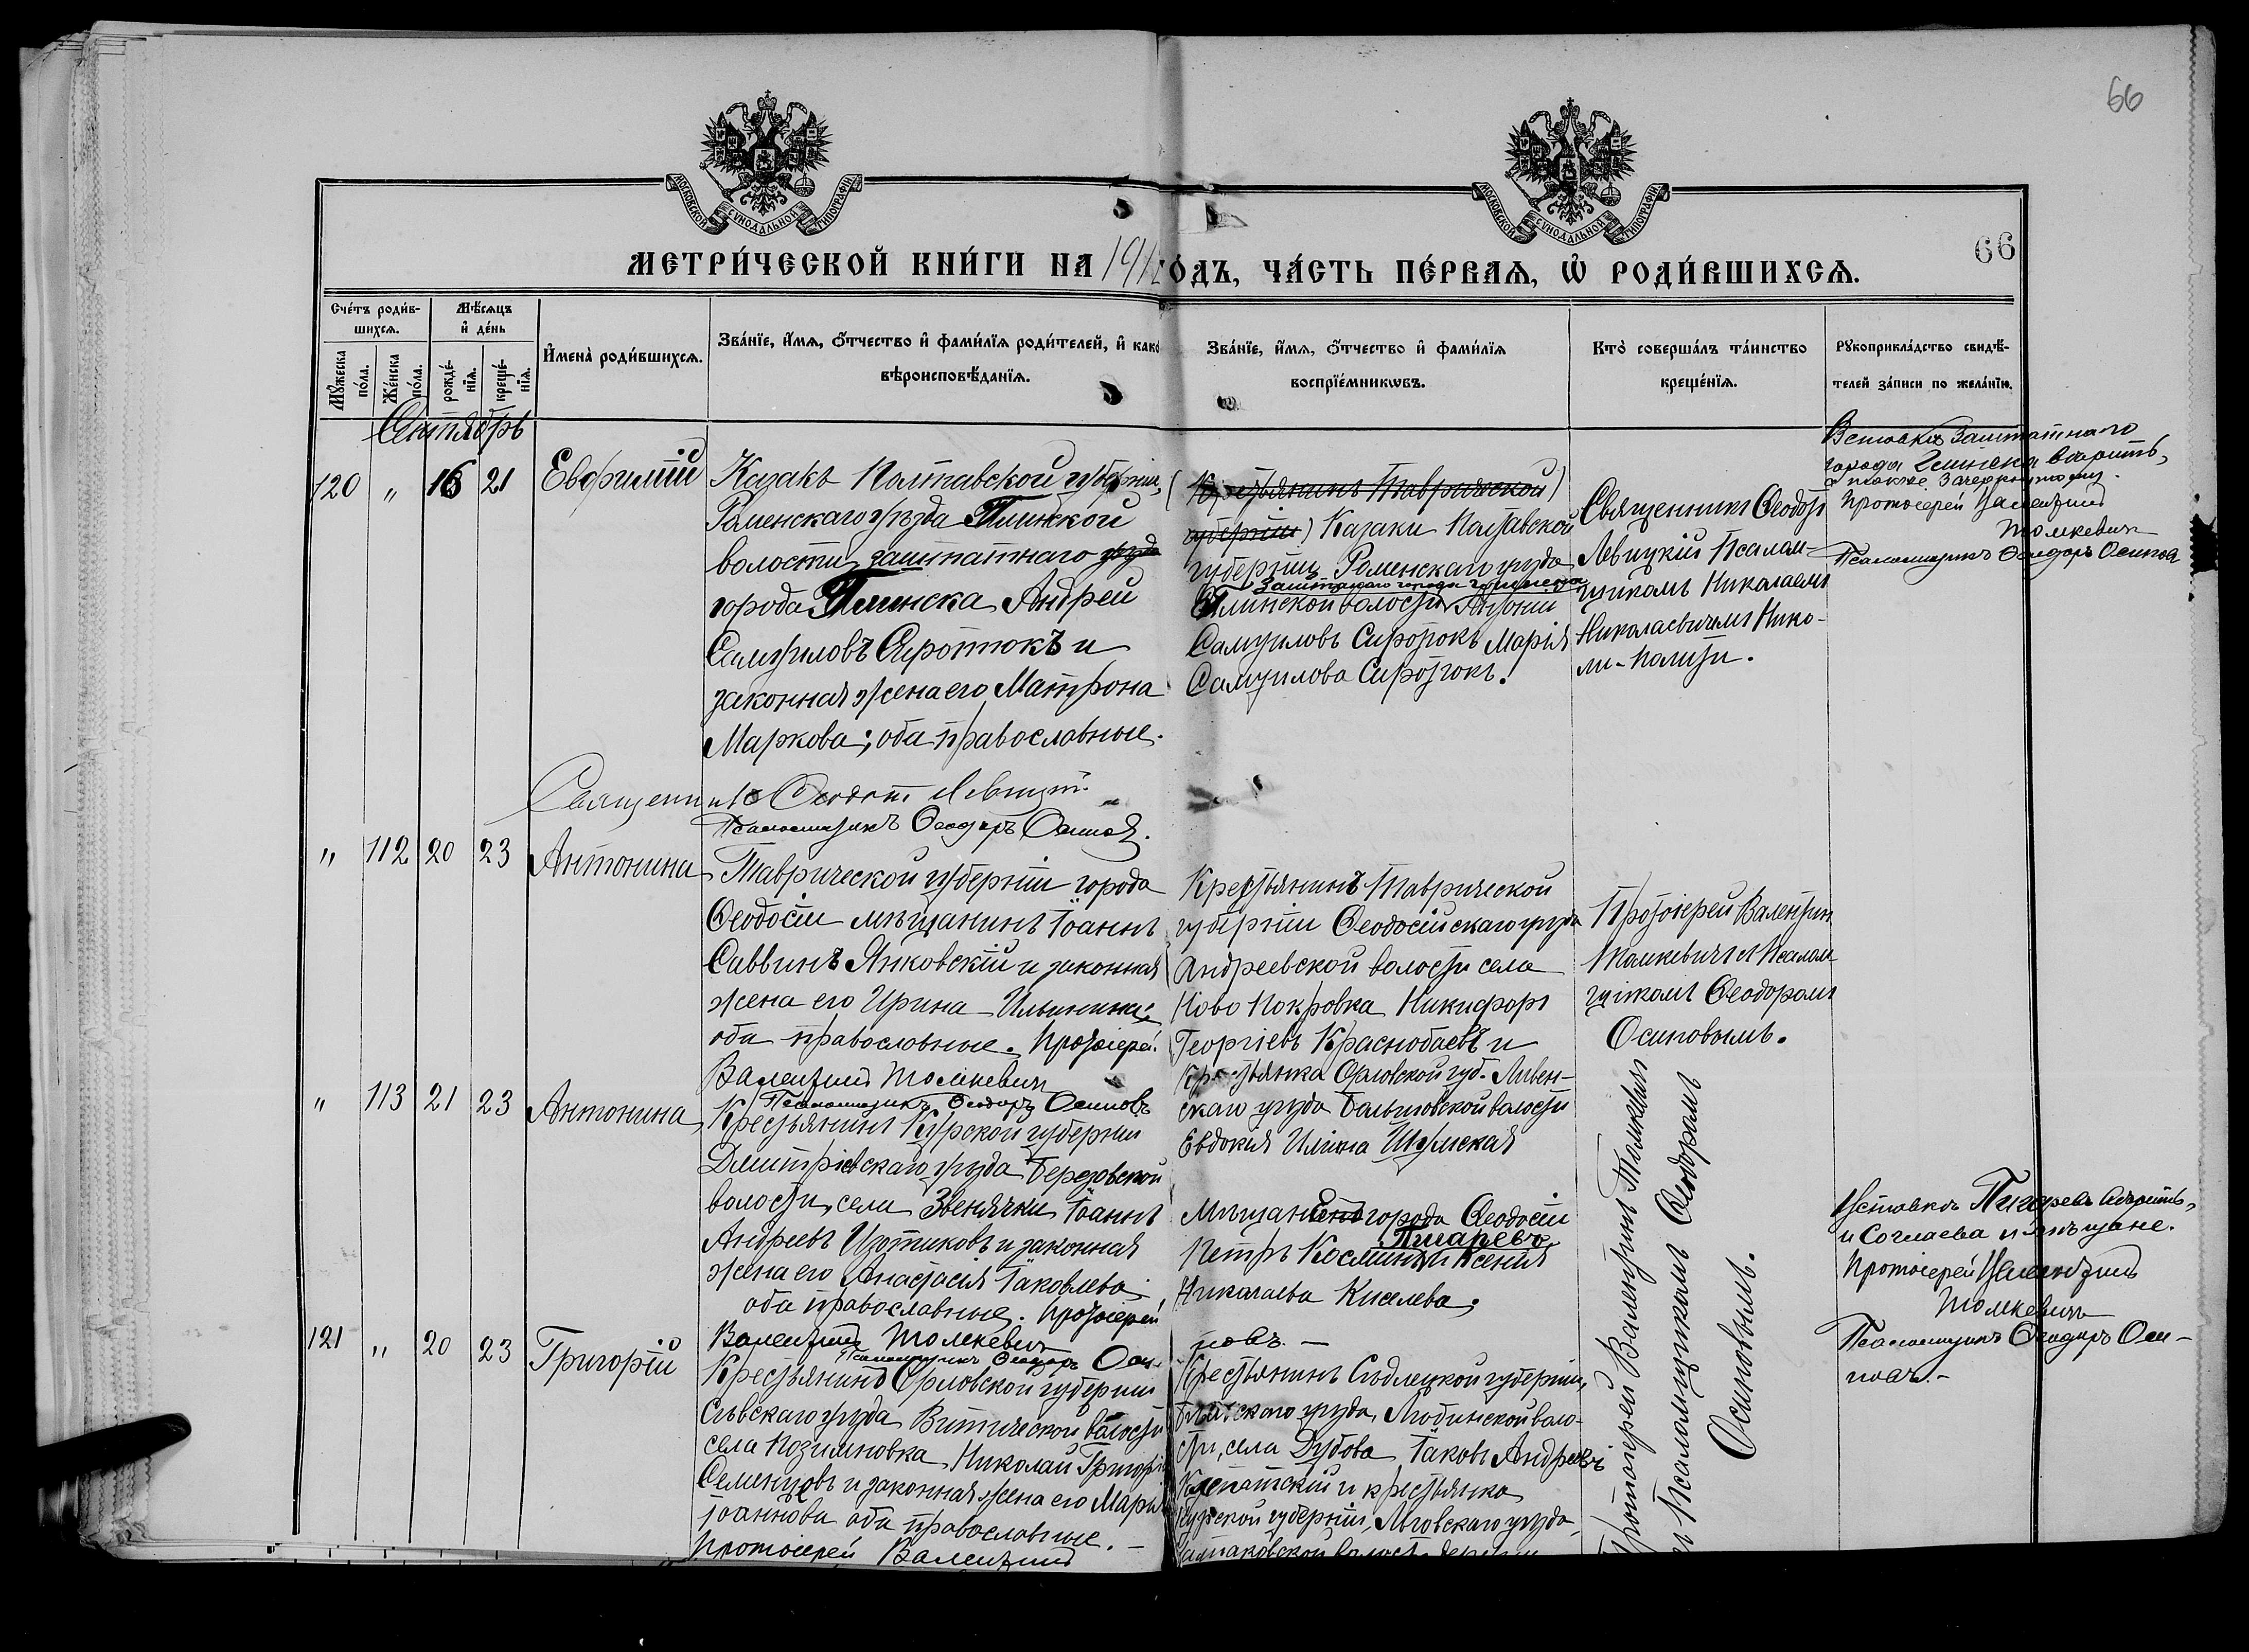 66
МОСКОВСКОЙ СѴНОДАЛЬНОЙ ТИПОГРАФІИ
МОСКОВСКОЙ СѴНОДАЛЬНОЙ ТИПОГРАФІИ
66
МЕТРИ́ЧЕСКОЙ КНИ́ГИ НА 191
ГО́ДЪ, ЧА́СТЬ ПЕ́РВАѦ, Ѡ РОДИ́ВШИХСѦ.
Сче́тъ роди́в-
шихсѧ.
Мѣ́сѧцъ
и҆ де́нь
Мꙋ́жеска по́ла.
Же́нска по́ла.
рожде́-
нїѧ.
креще́-
нїѧ.
И҆мена̀ роди́вшихсѧ.
Зва́нїе, и҆́мѧ, ѻ҆́тчество и҆ фами́лїѧ роди́телей, и҆ како
вѣроисповѣ́данїѧ.
Зва́нїе, и҆́мѧ, ѻ҆́тчество и҆ фами́лїѧ
воспрїе́мникѡвъ.
Кто̀ соверша́лъ та́инство
креще́нїѧ.
Рꙋкоприкла́дство свидѣ́-
телей за́писи по жела́нїю.
Сентябрь
120 " 16 21 Евфимій
Казакъ Полтавской губерніи,
Роменскаго уѣзда Глинской
волости заштатнаго уѣзда
города Глинска Андрей
Самуиловъ Сиротюкъ и
законная жена его Матрона
Маркова; оба православные.
Священникъ Ѳеодотъ Левицкій
Псаломщикъ Ѳеодоръ Осиповъ.
(Крестьянинъ Таврической)
губерніи) Казаки Полтавской
губерніи Роменскаго уѣзда
Заштатнаго города Глинска
Глинской волости Антоній
Самуиловъ Сиротюкъ Марія
Самуилова Сиротюкъ.
Священникъ Ѳеодотъ
Левицкій Псалом-
щикомъ Николаемъ
Николаевичемъ Нико-
Вставка Заштатнаго
города Глинска вѣрить,
а также Зачеркнутому.
Протоіерей Валентинъ
Томкевичъ
Псаломщикъ Ѳеодоръ Осипов
" 112 20 23 Антонина
Таврической губерніи города
Ѳеодосіи мѣщанинъ Іоаннъ
Саввинъ Янковскій и законная
жена его Ирина Ильинична
оба православные. Протоіерей
Валентинъ Томкевичъ
Псаломщикъ Ѳеодоръ Осиповъ
Крестьянинъ Таврической
губерніи Ѳеодосійскаго уѣзда
Андреевской волости села
Ново Покровка Никифоръ
Георгіевъ Краснобаевъ и
Крестьянка Орловской губ. Ливен-
скаго уѣзда волости
Евдокія Шумская
Протоіерей Валентин
Томкевичъ и Псалом
щикомъ Ѳеодоромъ
Осиповымъ.
" 113 21 23 Антонина
Крестьянинъ Курской губерніи
Дмитріевскаго уѣзда Березовской
волости, села Звенячки Іоаннъ
Андреевъ Изотиковъ и законная
жена его Анастасія Іаковлева
оба православные. Протоіерей
Валентинъ Томкевичъ
Псаломщикъ Ѳеодоръ Оси-
Мѣщане города Ѳеодосіи
Пигаревъ
Петръ Косминъ и Ксенія
Николаева Киселева.
повъ. –
Протоіерей Валентинъ Томкевичъ
съ Псаломщикомъ Ѳеодоромъ
Осиповымъ.
Вставка Пигаревъ вѣрить,
и мѣщане.
Протоіерей Валентинъ
Томкевичъ
Псаломщикъ Ѳеодоръ Оси-
повъ. –
121 " 20 23 Григорій
Крестьянинъ Орловской губерніи
Сѣвскаго уѣзда волости
села Позимновка, Николай Григорі
Семенцовъ и законная жена его Марія
Іоаннова оба православные. –
Протоіерей Валентинъ
Крестьянинъ Сѣдлецкой губерніи,
Бѣльскаго уѣзда, Лю волос-
сти, села Дубова Іаковъ Андреевъ
и крестьянка
Курской губерніи, Льговскаго уѣзда,